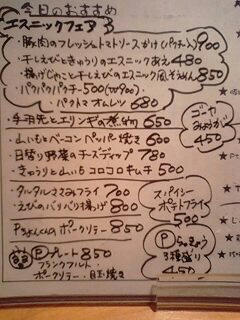 今日のおすすめ
エスニックフェア
・豚肉のフレッシュトマトソースがけ(パクチー入) 900
・干しえびときゅうりのエスニックあえ 480
・揚げじゃこと干しえびのエスニック風そうめん 850
・パクパクパクチー 500
・パクトマオムレツ 680
・手羽先とエリンギの煮物 650
・山いもとベーコン ペッパー焼き 600
・日替り野菜のチーズディップ 780
・きゅうりと山いも コロコロキムチ 500
ゴーヤ
みょうが
450
・タルタルささみフライ 700
・えびのパリパリ揚げ 800
スパイシー
ポテトフライ
500
・Pちゃんくんの ポークソテー 850
Pプレート 850
フランクフルト
ポークソテー・目玉焼き
P らっきょう
3種盛り
450